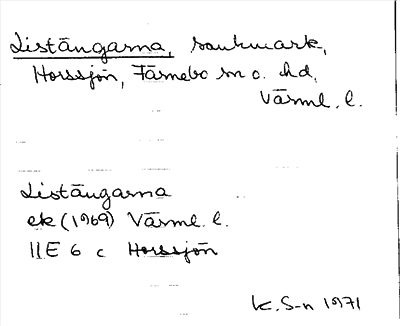 Listängarna, sankmark,
Horssjön, Färnebo sn o. hd,
Värml. l.
Listängarna
ek (1969) Värml. l.
11E 6 c Horssjön
K. S-n 1971